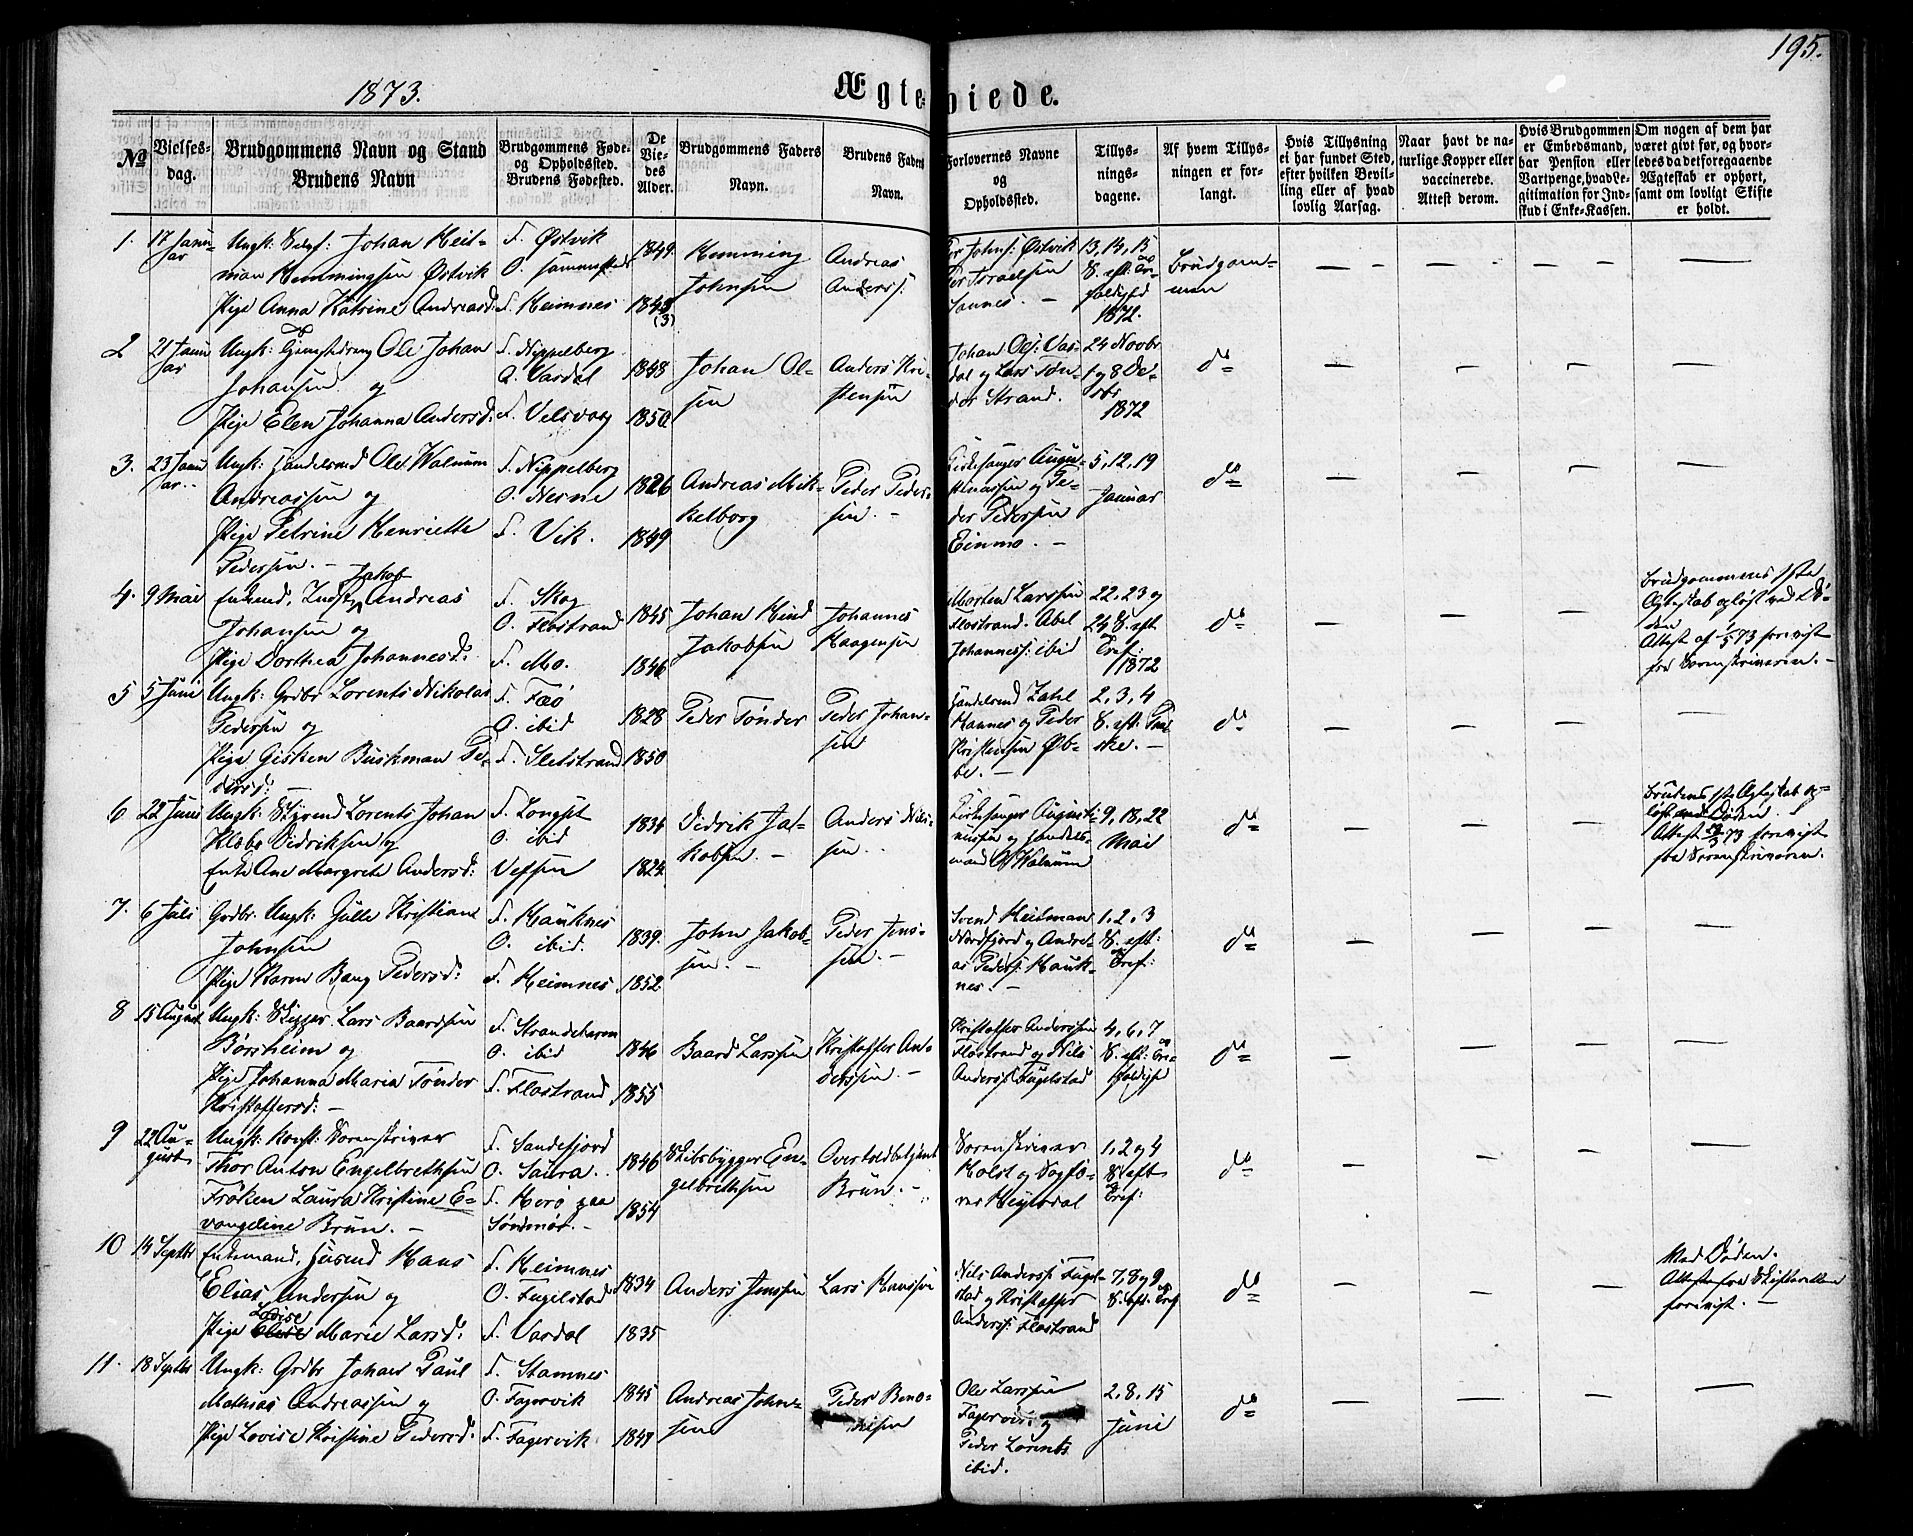 195.
1873.
Ægteviede.
No
Vielses-
dag.
Brudgommens Navn og Stand
Brudens Navn
Brudgommens Føde-
og Opholdssted.
Brudens Fødested.
De
Vie-
des
Alder.
Brudgommens Faders
Navn.
Brudens Faders
Navn.
Forlovernes Navne
og
Opholdssted.
Tillys-
nings-
dagene.
Af hvem Tillys-
ningen er for-
langt.
Hvis Tillysning
ei har fundet Sted,
efter hvilken Bevil-
ling eller af hvad
lovlig Aarsag.
Naar havt de na-
turlige Kopper eller
vaccinerede.
Attest derom.
Hvis Brudgommen
er Embedsmand,
har Pension eller
Vartpenge, hvad Le-
gitimation for Ind-
skud i Enke-Kassen.
Om nogen af dem har
været givt før, og hvor-
ledes da det foregaaende
Ægteskab er ophørt,
samt om lovligt Skifte
er holdt.
1. 17 Janu-
ar
Ungk: Johan Heit-
man Hemmingsen Østvik
Pige Anna Katrine Andreasd:
F. Østvik
O.
F. Heimnes
1849.
1848
(3)
Hemming
Johnsen
Andreas
Anderss:
Per Johns: Østvik
Per Israelsen
Sannes. -
13, 14, 15
S. eft. Tri-
foldighed
1872.
Brudgom-
men
2 21 Janu
ar
Ungk: Ole Johan
Johansen og
Pige Elen Johanna Andersd:
F. Nippelberg
O. Vardal
F. Velsvaag
1848
1850
Johan Ol-
sen
Anders Kri-
stensen
Johan Ols: Var-
dal og Lars Tøn-
der Strand.
24 Novbr
1 og 8 De-
cbr
1872
do
3. 23 Janu
ar..
Ungk: Handelsmd Ole Walnum
Andreassen og
Pige Petrine Henriette
Pedersen. -
F. Nippelberg
O. Nesne
F. Vik.
1826
1849
Andreas Mik-
kelborg
Peder Peder-
sen. -
Kirkesanger Augu-
stinussen og Pe-
der Pedersen
Einmo. -
5, 12, 19
Januar
do
4. 9 Mai
Enkmd, Indst, Jakob Andreas
Johansen og
Pige Dorthea Johannesd:
F. Skog
O. Flostrand
F. Mo.
1845
1846
Johan Hind
Jakobsen
Johannes
Haagensen
Morten Larssen
Flostrand. Abel
Johanness: ibid
22, 23 og
24 S. eft
Tref:
1872
do
Brudgommens 1ste
Ægteskab opløst ved Dø-
den
Attest af 1/5 73 forevist
fra Sorenskriveren. -
5 5 Juni
Ungk: Grdbr Lorents Nikolai
Pedersen og
Pige Gisken Buskman Pe-
dersd: -
F. Fæø
O. ibid
F. Sletstrand
1828
1850
Peder Tønder
Peder Johan-
sen
Handelsmd Zahl
Hannes og Peder
Kristensen Øb-
be. -
2, 3, 4
S. eft. Paa
ske. -
do
6 22 Juni
Ungk: Styrmd Lorents Johan
Klæbo Didriksen og
Enke Ane Margrete Andersd:
F. Longset
O. ibid
Vefsen
1836
1824
Didrik Ja-
kobsen. -
Anders Nils-
sen.
Kirkesanger Augusti-
nussen og Handels-
mand O Walnum
9, 18, 22
Mai
do
Brudens 1ste Ægteskab op-
løst ved Døden.
Attest /73 forevist
fra Sorenskriveren.
7. 6 Juli
Grdbr. Ungk: Julle Kristian
Johnsen
Pige Karen Bang Pedersd:
F. Hauknes
O. ibid.
F. Heimnes
1839.
1852
John Jakob-
sen. -
Peder Jens-
sen. -
Svend Heitman
Nordfjord og Andre-
as Peders: Hauk-
nes. -
1, 2, 3
S. eft:
Tref:
do
8 15 August
Ungk: Skipper Lars Baardsen
Børsheim og
Pige Johanna Maria Tønder
Kristoffersd: -
F. Strandebarm
O. ibid
F. Flostrand
1846
1855
Baard Larssen
Kristoffer An-
derssen. -
Kristoffer Anderssen
Flostrand og Nils
Anderss: Fugelstad
4, 6, 7
S. eft: Tre-
foldigh
do
9 22 Au-
gust
Ungk: Konst: Sorenskriver
Thor Anton Engelbrethsen
Frøken Laura Kristine E-
vangeline Brun. -
F. Sandefjord
O. Saura.
F. Herø paa
Søndmør. -
1846
1854
Skibsbygger En-
gelbrethsen
Overtoldbetjent
Brun. -
Sorenskriver
Holst og Sagfø-
rer Heyerdal
1, 2 og 4
S eft
Tref:
do
10 14 Septbr
Enkemand, Husmd Hans
Elias Andersen og
Pige Elise Lovise Marie Larsd:
F. Heimnes
O. Fugelstad
F. Vardal
1834
1835
Anders Jenssen
Lars Hanssen
Nils Anderss: Fugel-
stad og Kristoffer
Anderss: Flostrand
7, 8 og 9
S. eft. Tref
do
Ved Døden.
Attest fra Skifteretten
forevist. -
11. 18 Septbr
Ungk: Grdbr Johan Paul
Mathias Andreassen og
Pige Lovise Kristine Pedersd:
F. Stamnes
O. Fagervik
F. Fagervik
1845
1849
Andreas John-
sen
Peder Bene-
diksen
Ole Larssen
Fagervik og
Peder Lorents
ibid.
2, 8, 15
Juni
do